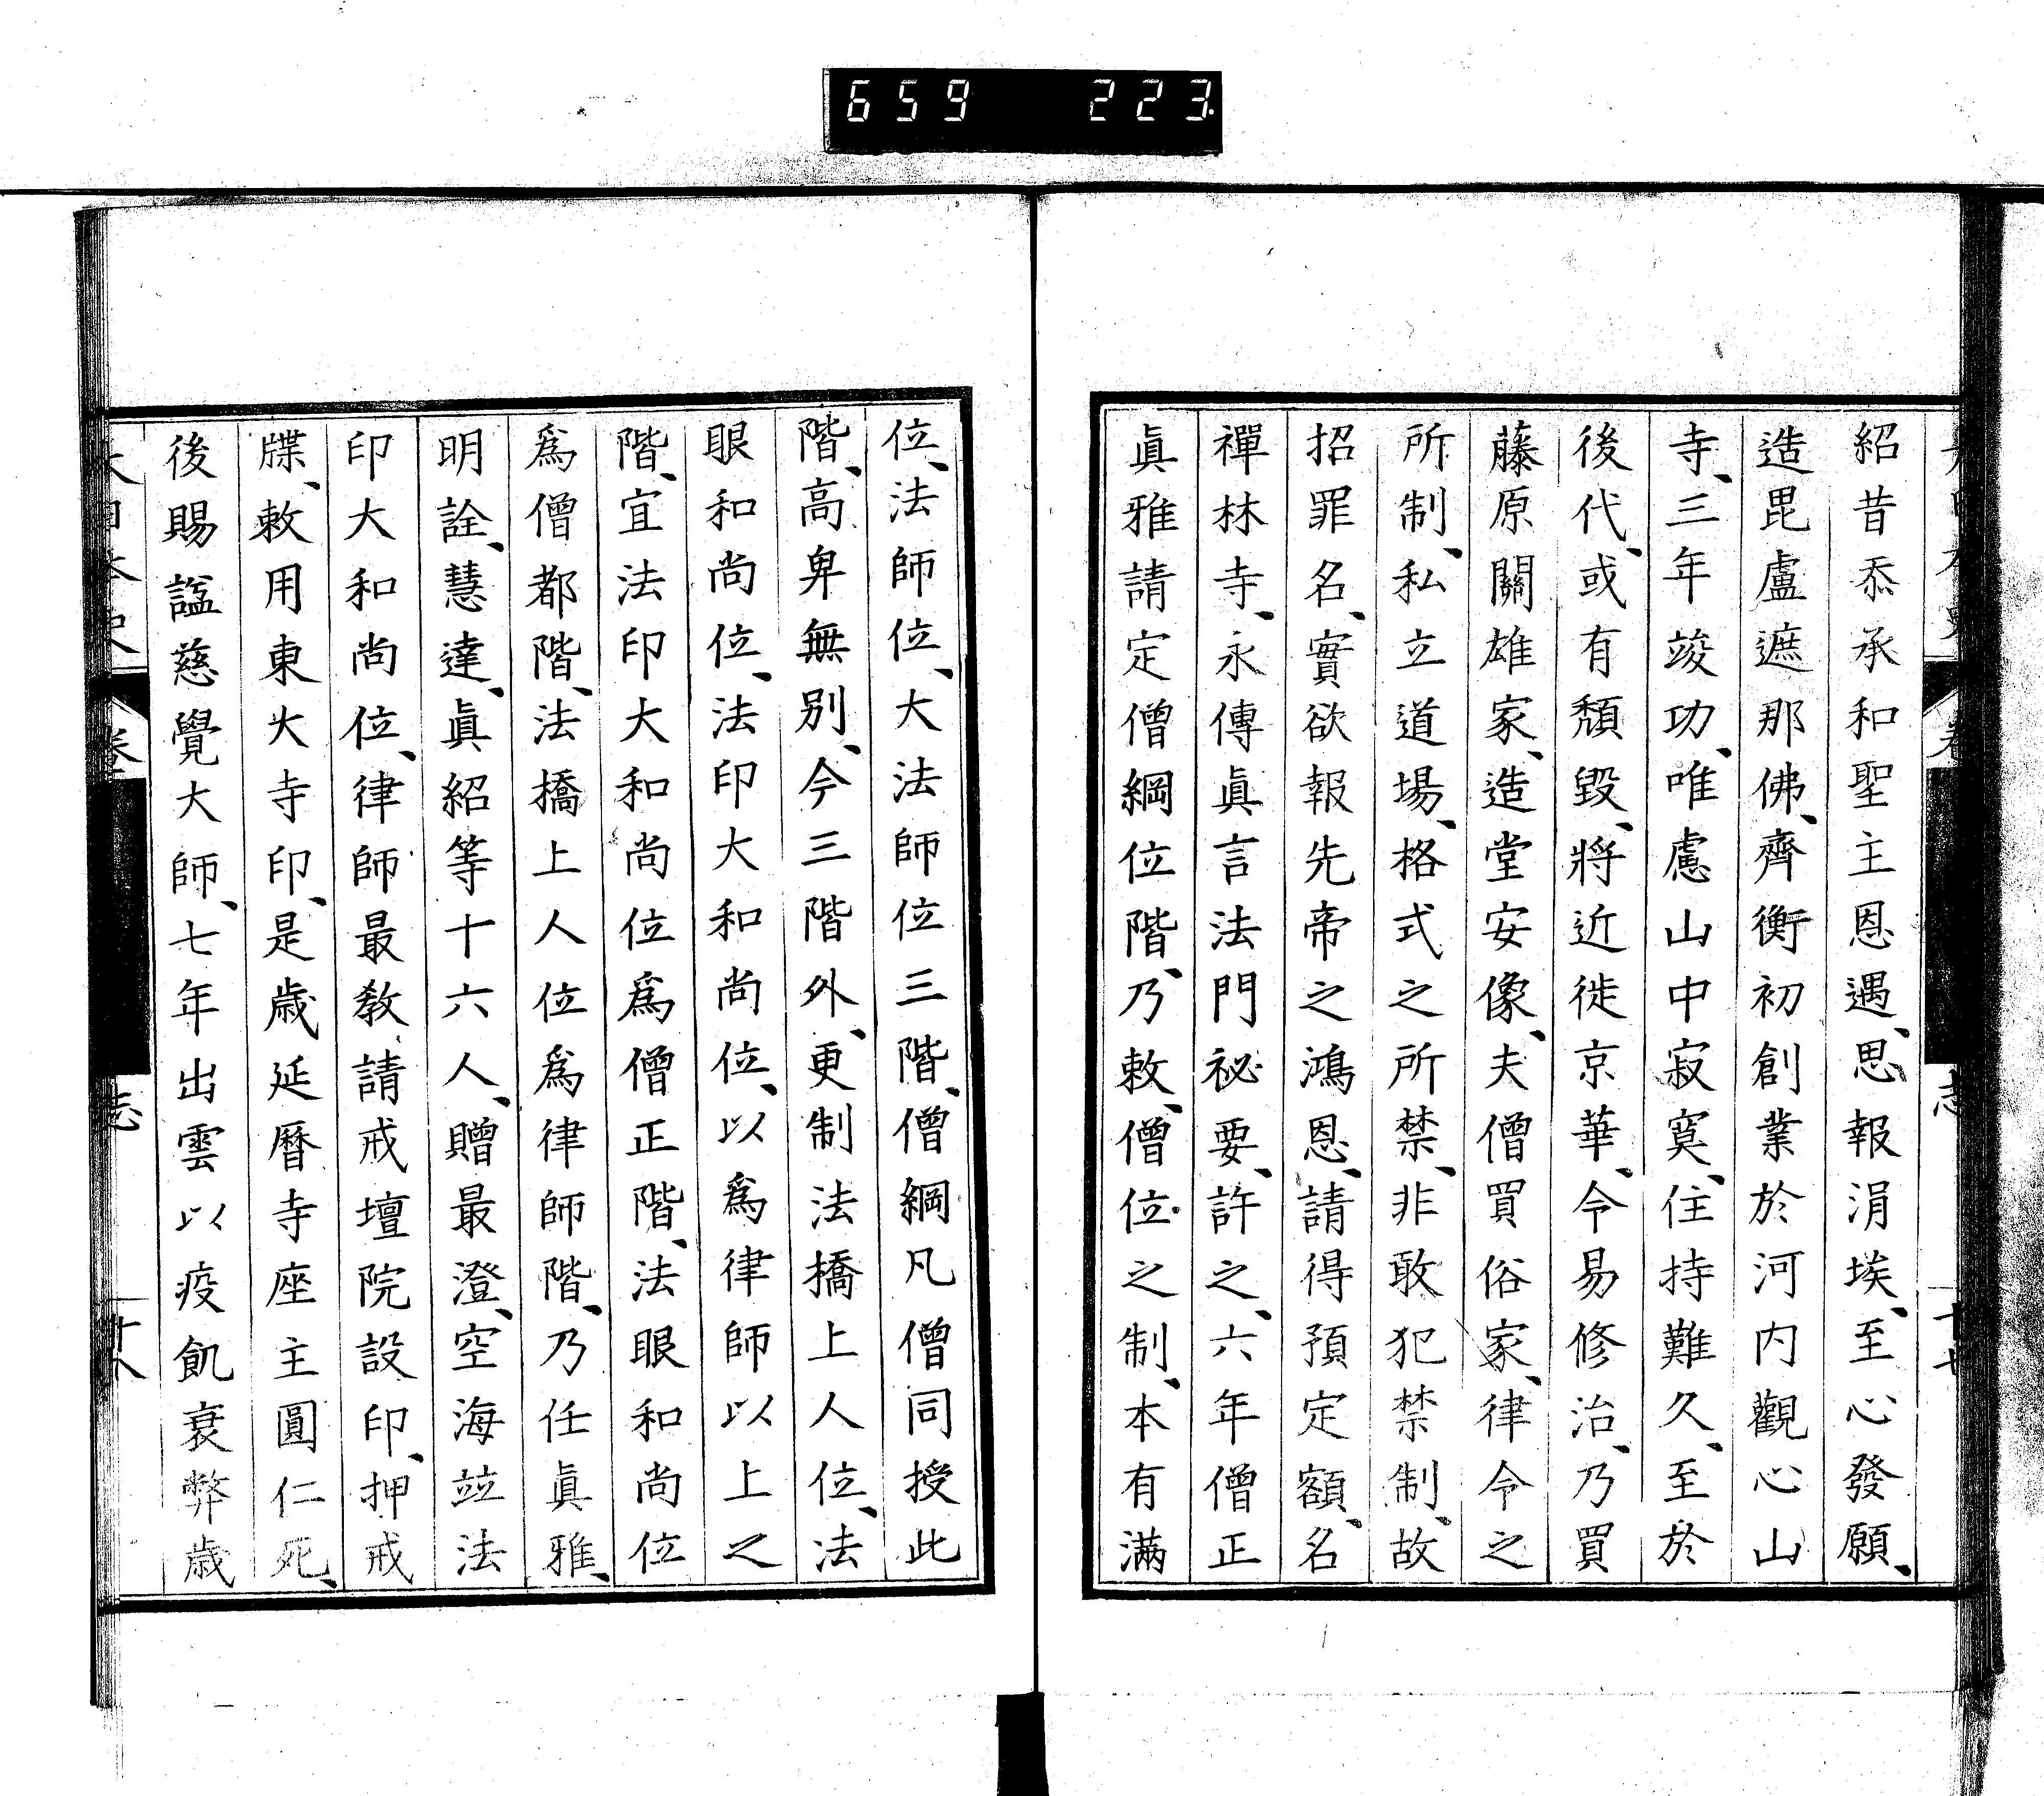 659 223
紹昔忝承和聖主恩遇、思報涓埃、至心發願、
造毘盧遮那佛、齊衡初創業於河内觀心山
寺、三年竣功、唯慮山中寂寞、住持難久、至於
後代、或有頽毀、將近徙京華、令易修治、乃買
藤原關雄家、造堂安像、夫僧買俗家、律令之
所制、私立道場、格式之所禁、非敢犯禁制、故
招罪名、實欲報先帝之鴻恩、請得預定額、名
禪林寺、永傳眞言法門祕要、許之、六年僧正
眞雅請定僧綱位階、乃敕、僧位之制、本有滿
位、法師位、大法師位三階、僧綱凡僧同授此
階、高卑無別、今三階外、更制法橋上人位、法
眼和尚位、法印大和尚位、以爲律師以上之
階、宜法印大和尚位爲僧正階、法眼和尚位
爲僧都階、法橋上人位爲律師階、乃任眞雅、
明詮、慧達、眞紹等十六人、贈最澄、空海竝法
印大和尚位、律師最教請戒壇院設印、押戒
牒、敕用東大寺印、是歳延曆寺座主圓仁死、
後賜諡慈覺大師、七年出雲以疫飢衰弊歳
大日本史
卷
志
十八